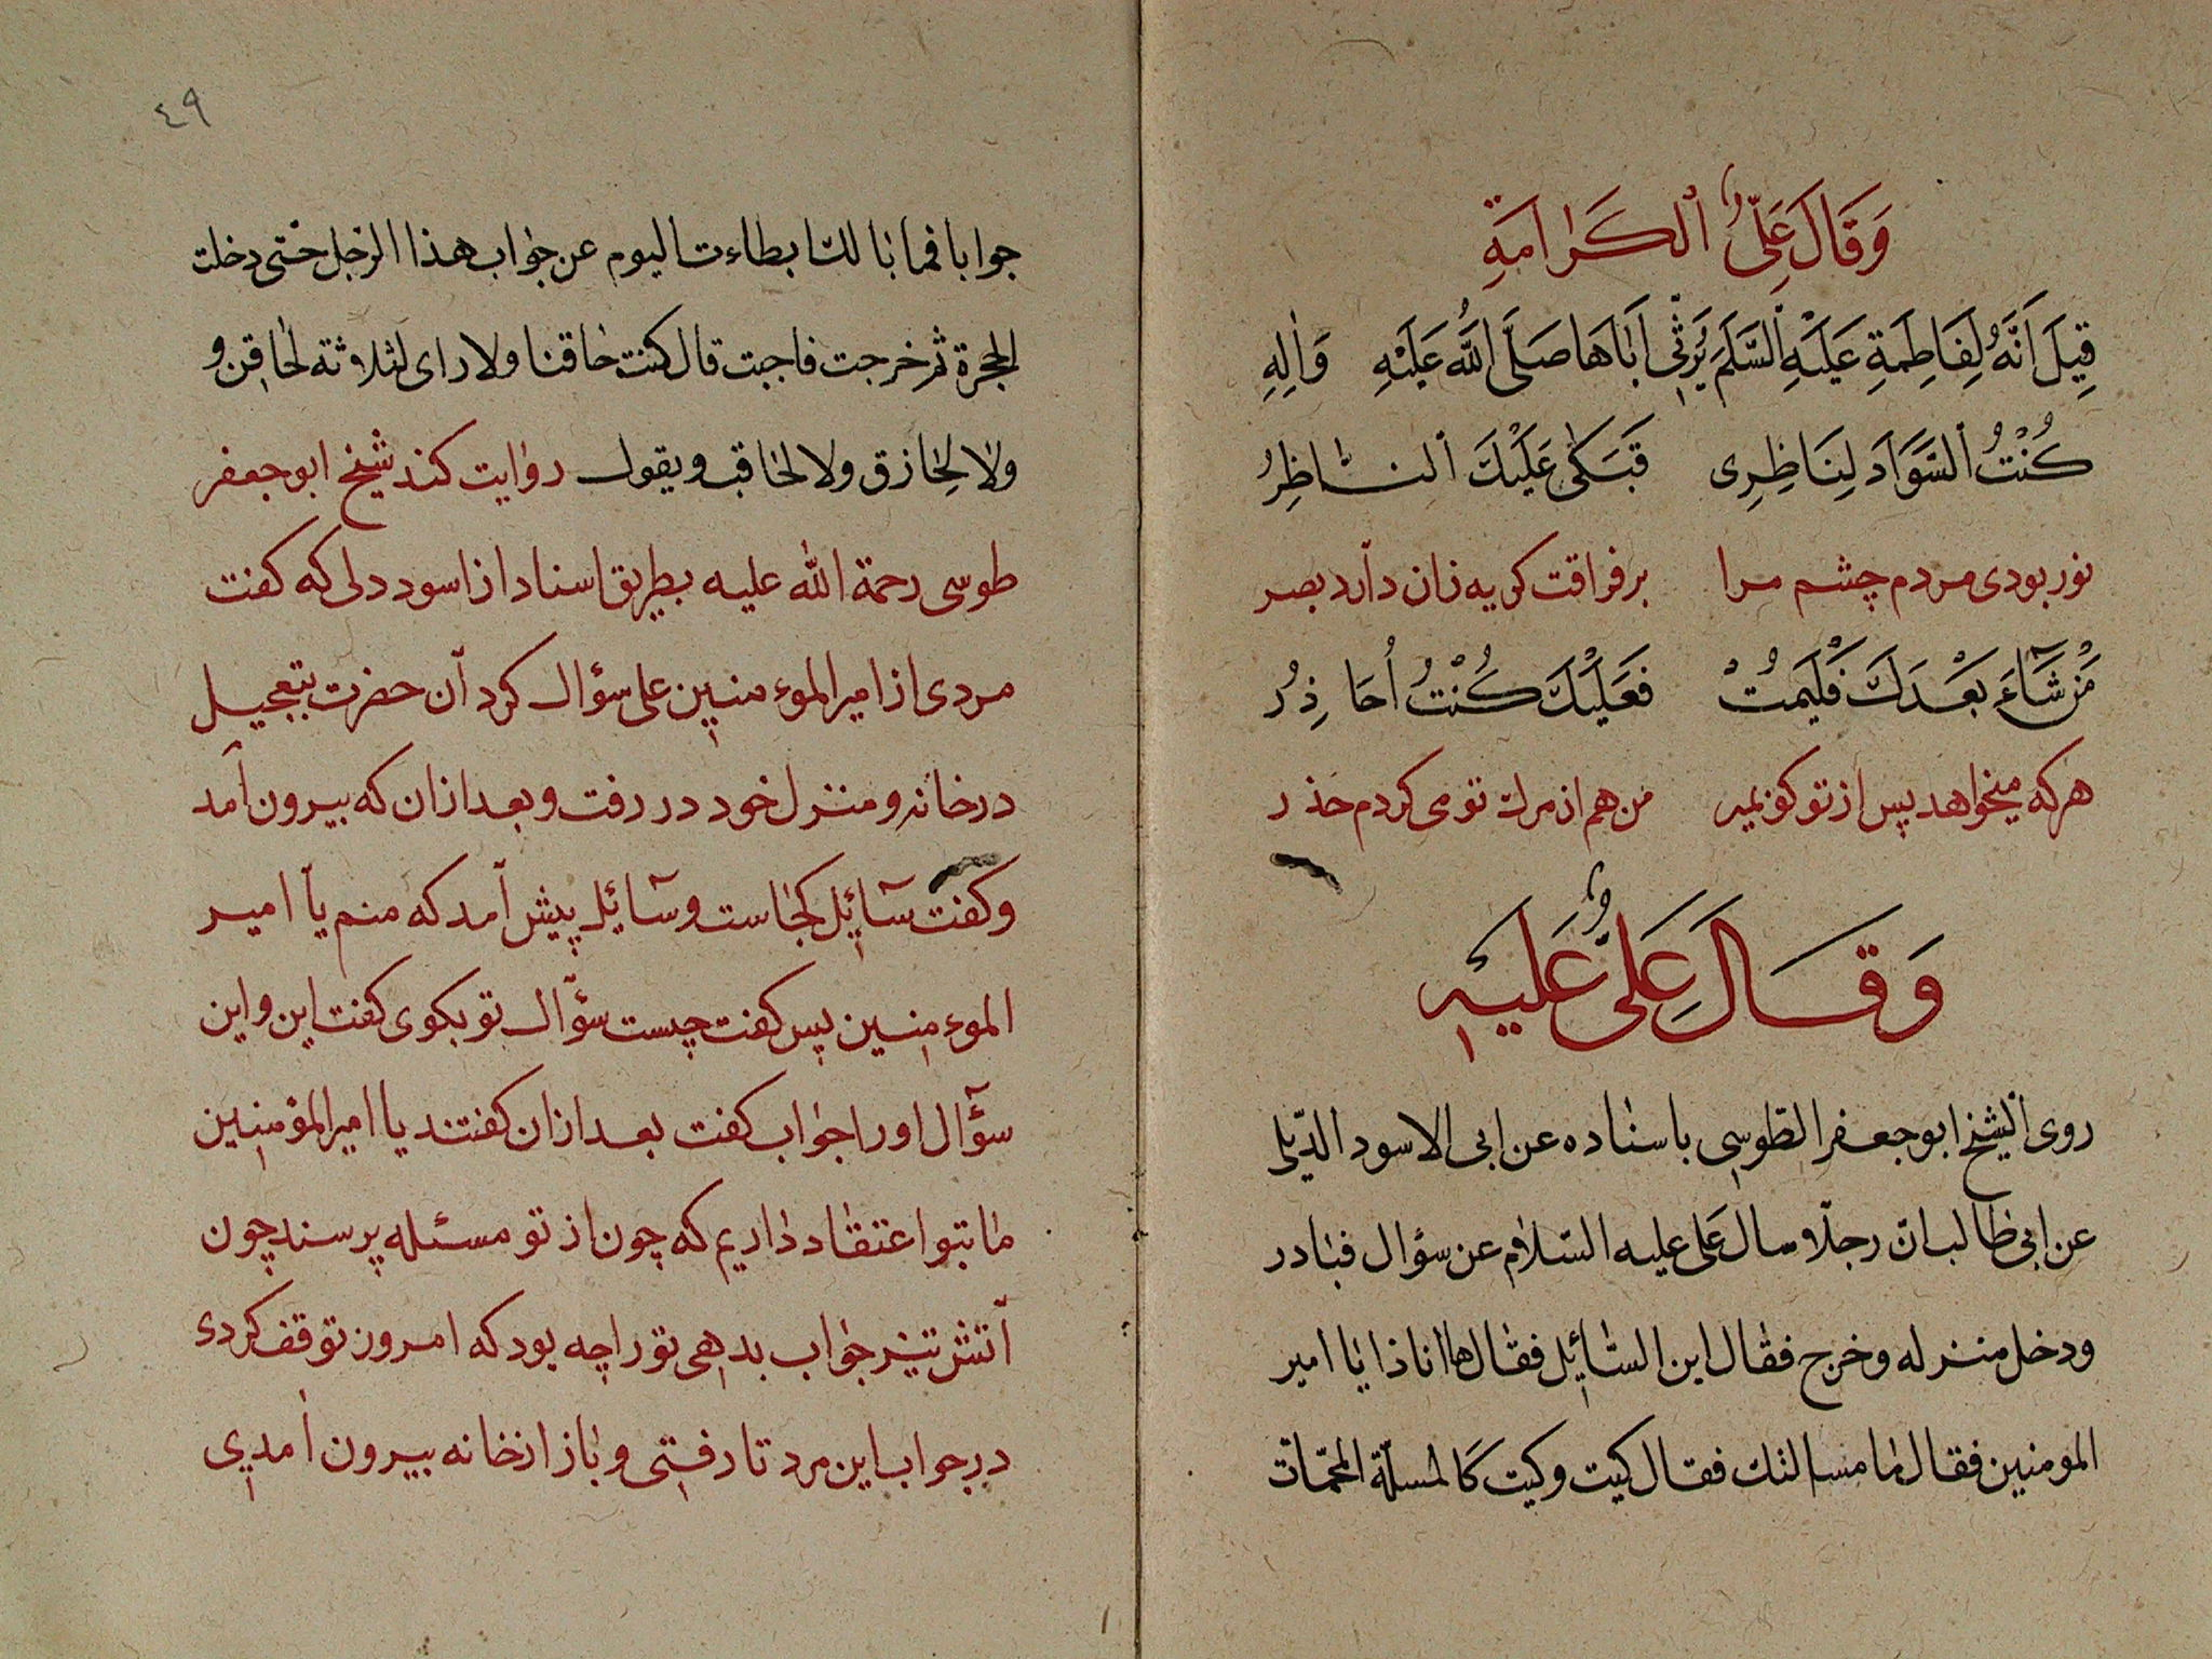 وَقَالَ عَلِىٌّ ٱلكَرٰامَةِ
قِيلَ اَنَّهُ لِفَاطِمَةِ عَلَيْهِ ٱلسَّلَمَ يَرْثِى اَبٰاهَا صَلَّى اللّٰهُ عَلَيْهِ وَاٰلِهِ
كُنْتُ ٱلسَّوَادَ لِنَاظِرِى فَبَكىٰ عَلَيْكَ ٱلنّٰاظِرُ
نور بودى مردم چشم مرا بر فراقت كريه زان دارد بصر
مَنْ شَآءَ بَعْدَكَ فَلْيَمُتْ فَعَلَيْكَ كُنْتُ اُحَاذِرُ
هركه ميخواهد پس از تو كو بمير من هم از مرك تو مى كردم حذر
وَقَالَ عَلىٌّ عَليهِ
روى ٱلشيخ ابو جعفر الطوسى باسناده عن ابى الاسود الدّيلى
عن ابى طالب انّ رجلًا سال على عليه السّلام عن سؤال فبادر
ودخل منزله وخرج فقال اين السّائل فقال ها انا ذا يا امير
المومنين فقال ما مسالتك فقال كيت وكيت كَالمسلة المحمّات
٤٩
جوابا فما بالك ابطاءت اليوم عن جواب هذا الرجل حتى دخلت
الحجرة ثم خرجت فاجبت قال كنت حاقنا ولا راى لثلاثة لحاقن و
ولا لِحازق ولا لحاقب ويقول روايت كند شيخ ابو جعفر
طوسى رحمة اللّٰه عليه بطريق اسناد از اسود دلى كه كفت
مردى از امير الموءمنين على سؤال كرد آن حضرت بتعجيل
در خانه و منزل خود در رفت و بعد ازان كه بيرون آمد
و كفت سآئِل كجاست و سآئِل پيش آمد كه منم يآ امير
الموءمنين پس كفت چيست سؤآل تو بكوى كفت اين و اين
سؤآل او را جواب كفت بعد ازان كفتند يا امير المؤمنين
ما بتو اعتقاد داريم كه چون از تو مسئله پرسند چون
آتش تيز جواب بدهى تو را چه بود كه امروز توقف كردى
در جواب اين مرد تا رفتى و باز از خانه بيرون آمدى